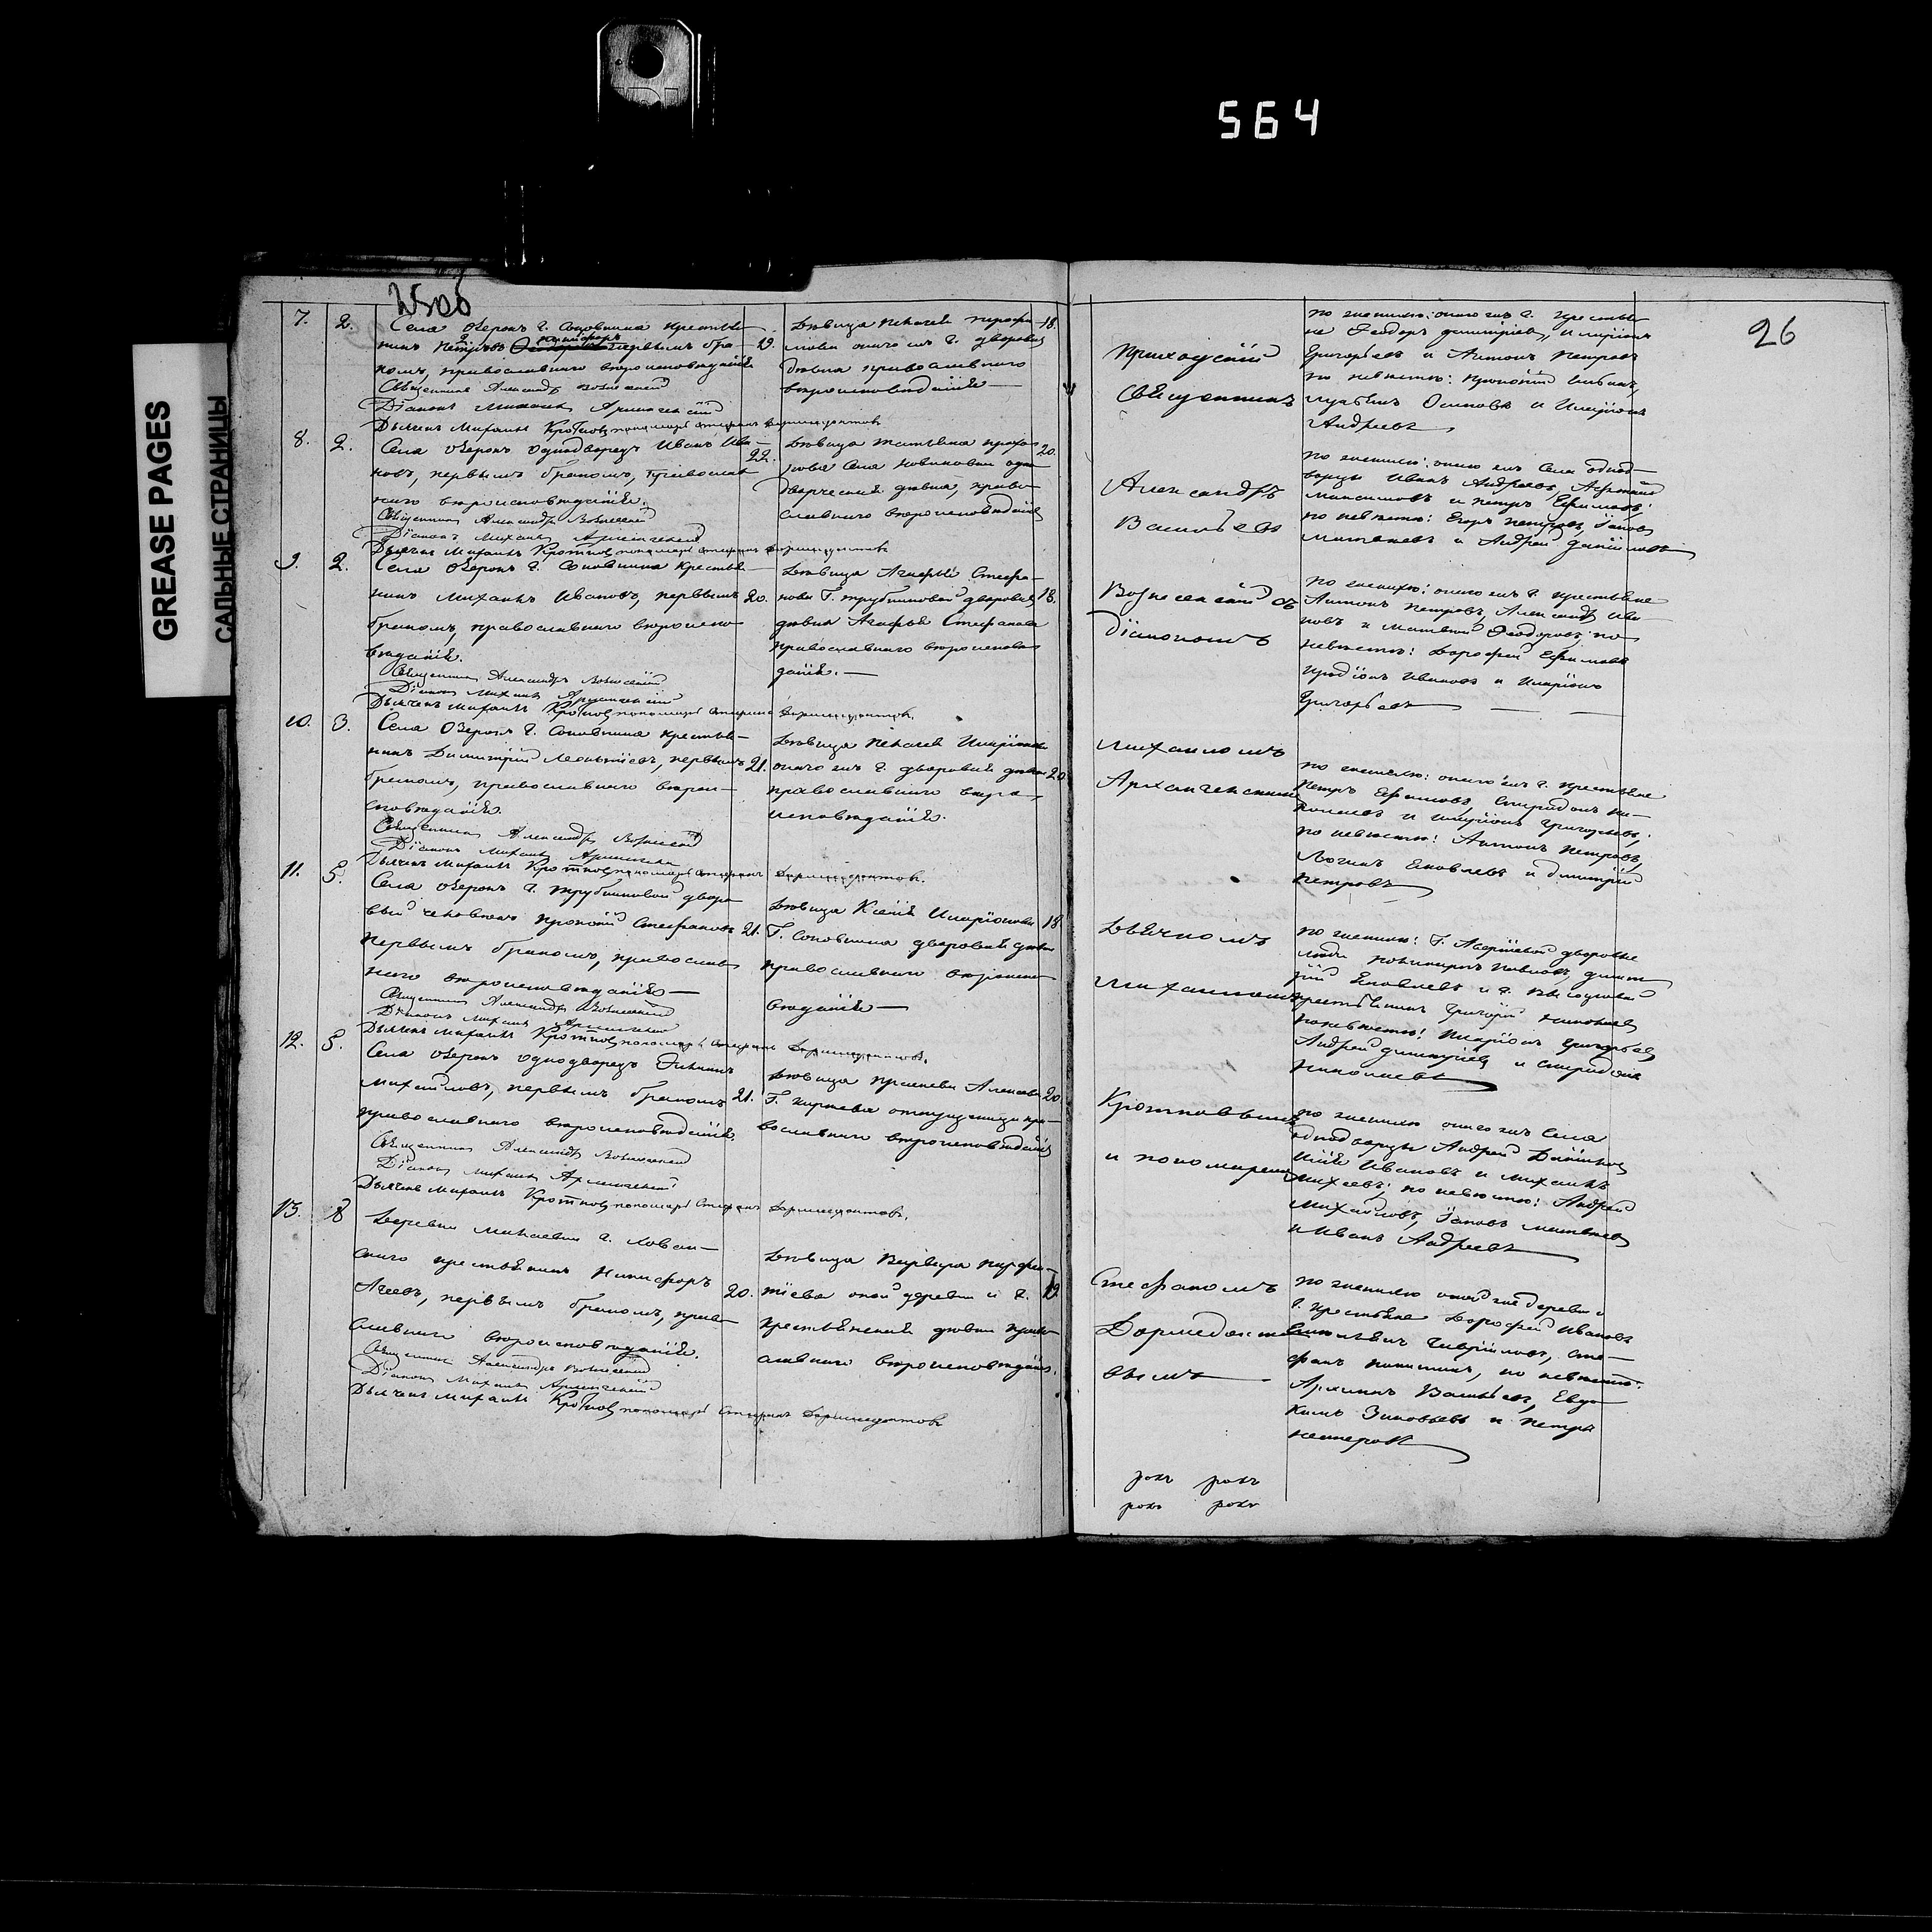 564
GREASE PAGES
САЛЬНЫЕ СТРАНИЦЫ
25об
26
7. 2.
Села Озерокъ г. Соковнина крестья-
нинъ Петровъ Никифоръ первымъ бра- 19.
комъ, православнаго вѣроисповѣданія
Священникъ Александръ Вознесенскій
Діаконъ Михаилъ Архангельскій
Дьячекъ Михаилъ Кротковъ пономарь Стефанъ Дормедонтовъ
Дѣвица Пелагея 18.
онаго жъ г. дворовая
дѣвка православнаго
вѣроисповѣданія
8. 2.
Села Озерокъ однодворецъ Иванъ Ива- 22.
новъ, первымъ бракомъ, православ-
наго вѣроисповѣданія.
Священникъ Александръ Вознесенскій
Діаконъ Михаилъ Архангельскій
Дьячекъ Михаилъ Кротковъ пономарь Стефанъ Дормедонтовъ
Дѣвица Татьяна Прохо- 20.
рова Села одно-
дворческая дѣвка, право-
славнаго вѣроисповѣданія
9. 2.
Села Озерокъ г. Соковнина крестья-
нинъ Михаилъ Ивановъ, первымъ 20.
бракомъ, православнаго вѣроиспо-
вѣданія.
Священникъ Александръ Вознесенскій
Діаконъ Михаилъ Архангельскій
Дьячекъ Михаилъ Кротковъ пономарь Стефанъ Дормедонтовъ.
Дѣвица Агафья Стефа-
нова Г. Трубниковой дворовая 18.
дѣвка Агафья Стефанова
православнаго вѣроисповѣ-
данія.
10. 3.
Села Озерокъ г. Соковнина крестья-
нинъ Димитрій Леонтіевъ, первымъ 21.
бракомъ, православнаго вѣрои-
сповѣданія.
Священникъ Александръ Вознесенскій
Діаконъ Михаилъ Архангельскій
Дьячекъ Михаилъ Кротковъ пономарь Стефанъ Дормедонтовъ.
Дѣвица Пелагея Иларіонова
онаго жъ г. дворовая дѣвка 20.
православнаго вѣро-
исповѣданія.
11. 5.
Села Озерокъ г. Трубниковой дворо-
вый человекъ Прокопій Стефановъ 21.
первымъ бракомъ, православ-
наго вѣроисповѣданія
Священникъ Александръ Вознесенскій
Діаконъ Михаилъ Архангельскій
Дьячекъ Михаилъ Кротковъ пономарь Стефанъ Дормедонтовъ.
Дѣвица Ксенія Иларіонова 18.
Г. Соковнина дворовая дѣвка
православнаго вѣроиспо-
вѣданія
12. 5.
Села Озерокъ однодворецъ
Михайловъ, первымъ бракомъ 21.
православнаго вѣроисповѣданія.
Священникъ Александръ Вознесенскій
Діаконъ Михаилъ Архангельскій
Дьячекъ Михаилъ Кротковъ пономарь Стефанъ Дормедонтовъ.
Дѣвица Алексѣева 20.
Г. отпущенница пра-
вославнаго вѣроисповѣданія
13. 8
Деревни Минаевки г. Хован-
скаго крестьянинъ Никифоръ
Агеевъ, первымъ бракомъ, право- 20.
славнаго вѣроисповѣданія.
Священникъ Александръ Вознесенскій
Діаконъ Михаилъ Архангельскій
Дьячекъ Михаилъ Кротковъ пономарь Стефанъ Дормедонтовъ
Дѣвица Варвара Парфен-
тіева оной деревни и г. 19.
крестьянская дѣвка право-
славнаго вѣроисповѣданія.
Приходскій
Священникъ
Александръ
Васильевъ
Вознесенскій съ
Діакономъ
Михаиломъ
Архангельскимъ
Дьячкомъ
Михаиломъ
Кротковымъ
и пономаремъ
Стефаномъ
Дормедонто-
вымъ
по женихѣ: онаго жъ г. крестья-
не Ѳеодоръ Димитріевъ, Иларіонъ
Григорьевъ и Антонъ Петровъ
по невѣстѣ: Прокопій
Осиповъ и Иларіонъ
Андреевъ
по женихѣ: онаго жъ Села однод-
ворцы Иванъ Андреевъ,
Максимовъ и Петръ Ефимовъ;
по невѣстѣ: Егоръ Петровъ, Іаковъ
Матвѣевъ и Андрей Даниловъ
по женихѣ: онаго жъ г. крестьяне
Антонъ Петровъ, Александръ Ива-
новъ и Матвѣй Ѳеодоровъ; по
невѣстѣ: Дорофей Ефимовъ
Иродіонъ Ивановъ и Иларіонъ
Григорьевъ
по женихѣ: онаго жъ г. крестьяне
Петръ Ефимовъ, Спиридонъ Ни-
колаевъ и Иларіонъ Григорьевъ;
по невѣстѣ: Антонъ Петровъ,
Логинъ Яковлевъ и Дмитрій
Петровъ
по женихѣ: Г. дворовые
люди Павловъ, Димит-
рій Яковлевъ и г.
крестьянинъ Григорій Николаевъ
по невѣстѣ: Иларіонъ Григорьевъ,
Андрей Димитріевъ и Спиридонъ
Николаевъ
по женихѣ онаго жъ Села
однодворцы Андрей
Ивановъ и Михаилъ
Михеевъ; по невѣстѣ: Андрей
Михайловъ, Іаковъ Матвѣевъ
и Иванъ Андреевъ
по женихѣ оной же деревни и
г. крестьяне Дорофей Ивановъ
Гавриловъ, Сте-
фанъ Никитинъ, по невѣстѣ:
Архипъ Васильевъ, Евдо-
кимъ Зиновьевъ и Петръ